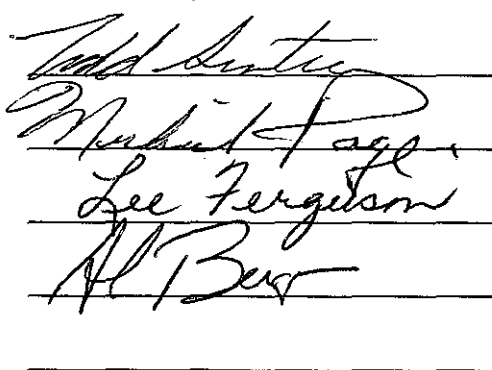 Todd
Michael Page
Lee Ferguson
Al Berg